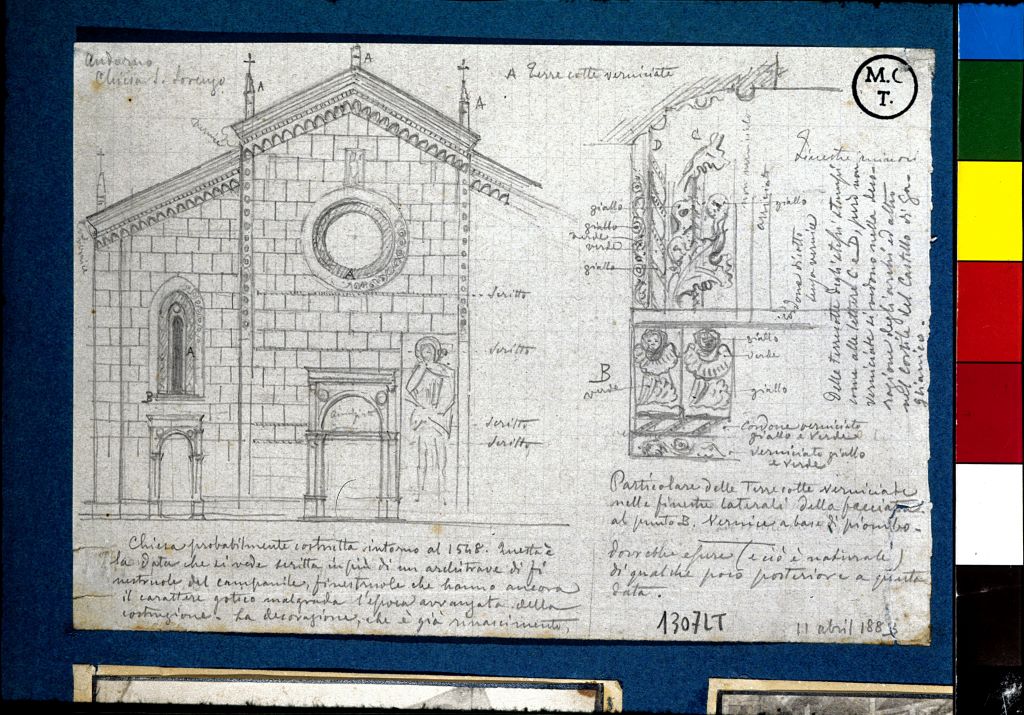 Andorno
Chiesa S. Lorenzo
A
A Terre cotte verniciate
M.C
T.
A
A
A
A
B
Scritto
Scritto
Scritto
Scritto
D
C
giallo
giallo
verde
verde
giallo
giallo
non verniciato
verniciato
done di cotto
senza vernice
Finestre minori
Delle terrecotte degli stessi stampi
come alle lettere C e D, però non
verniciate si vedono nella deco-
razione degli archi ed altro
nel cortile del Castello di Ga-
glianico.
B
verde
giallo
verde
giallo
Cordone verniciato
giallo e verde
verniciato giallo
e verde
Particolare delle Terre cotte verniciate
nelle finestre laterali della facciata
al punto B. Vernice a base di piombo.
Chiesa probabilmente costrutta intorno al 1548. Questa è
la data che si vede scritta in più di un architrave di fi
nestruole del campanile, finestruole che hanno ancora
il carattere gotico malgrado l'epoca avanzata della
costruzione. La decorazione, che è già rinascimento,
dovrebbe essere (e ciò è naturale)
di qualche poco posteriore a questa
data.
1307LT
11 abril 188